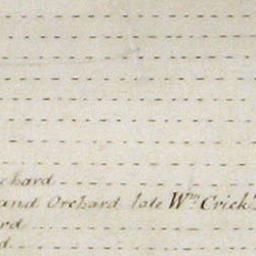 chard
and Orchard late Wm Crick's
rd
d